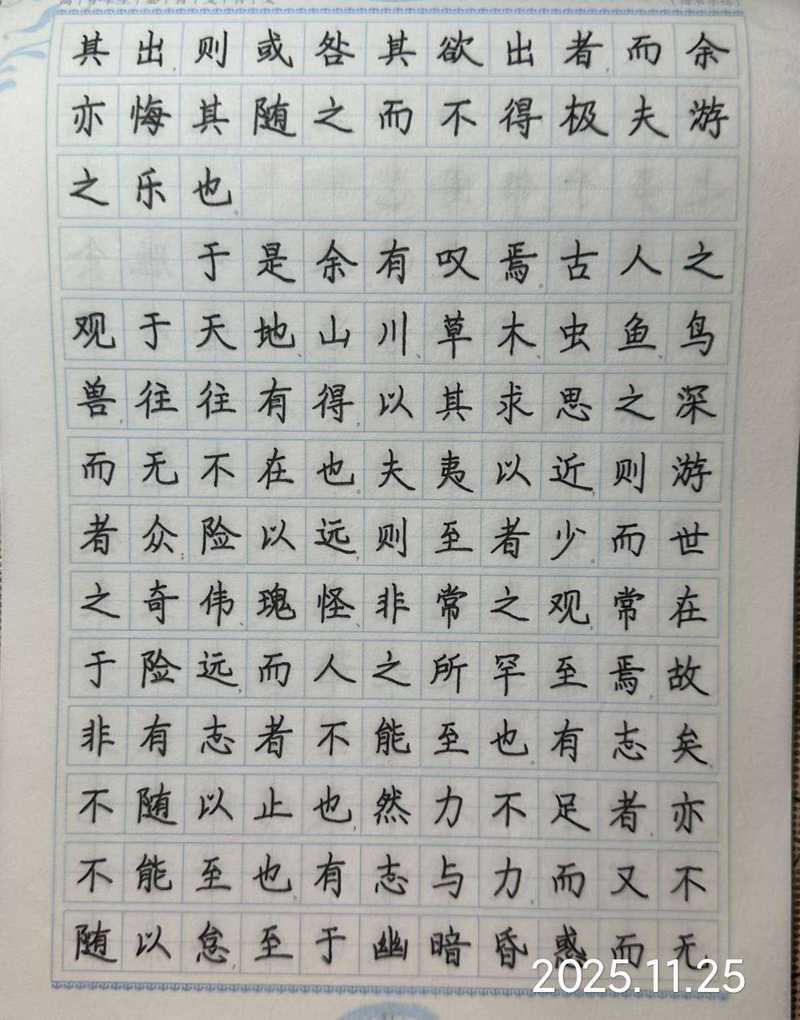 其出则或咎其欲出者而余
亦悔其随之而不得极夫游
之乐也
于是余有叹焉古人之
观于天地山川草木虫鱼鸟
兽往往有得以其求思之深
而无不在也夫夷以近则游
者众险以远则至者少而世
之奇伟瑰怪非常之观常在
于险远而人之所罕至焉故
非有志者不能至也有志矣
不随以止也然力不足者亦
不能至也有志与力而又不
随以怠至于幽暗昏惑而无
2025.11.25